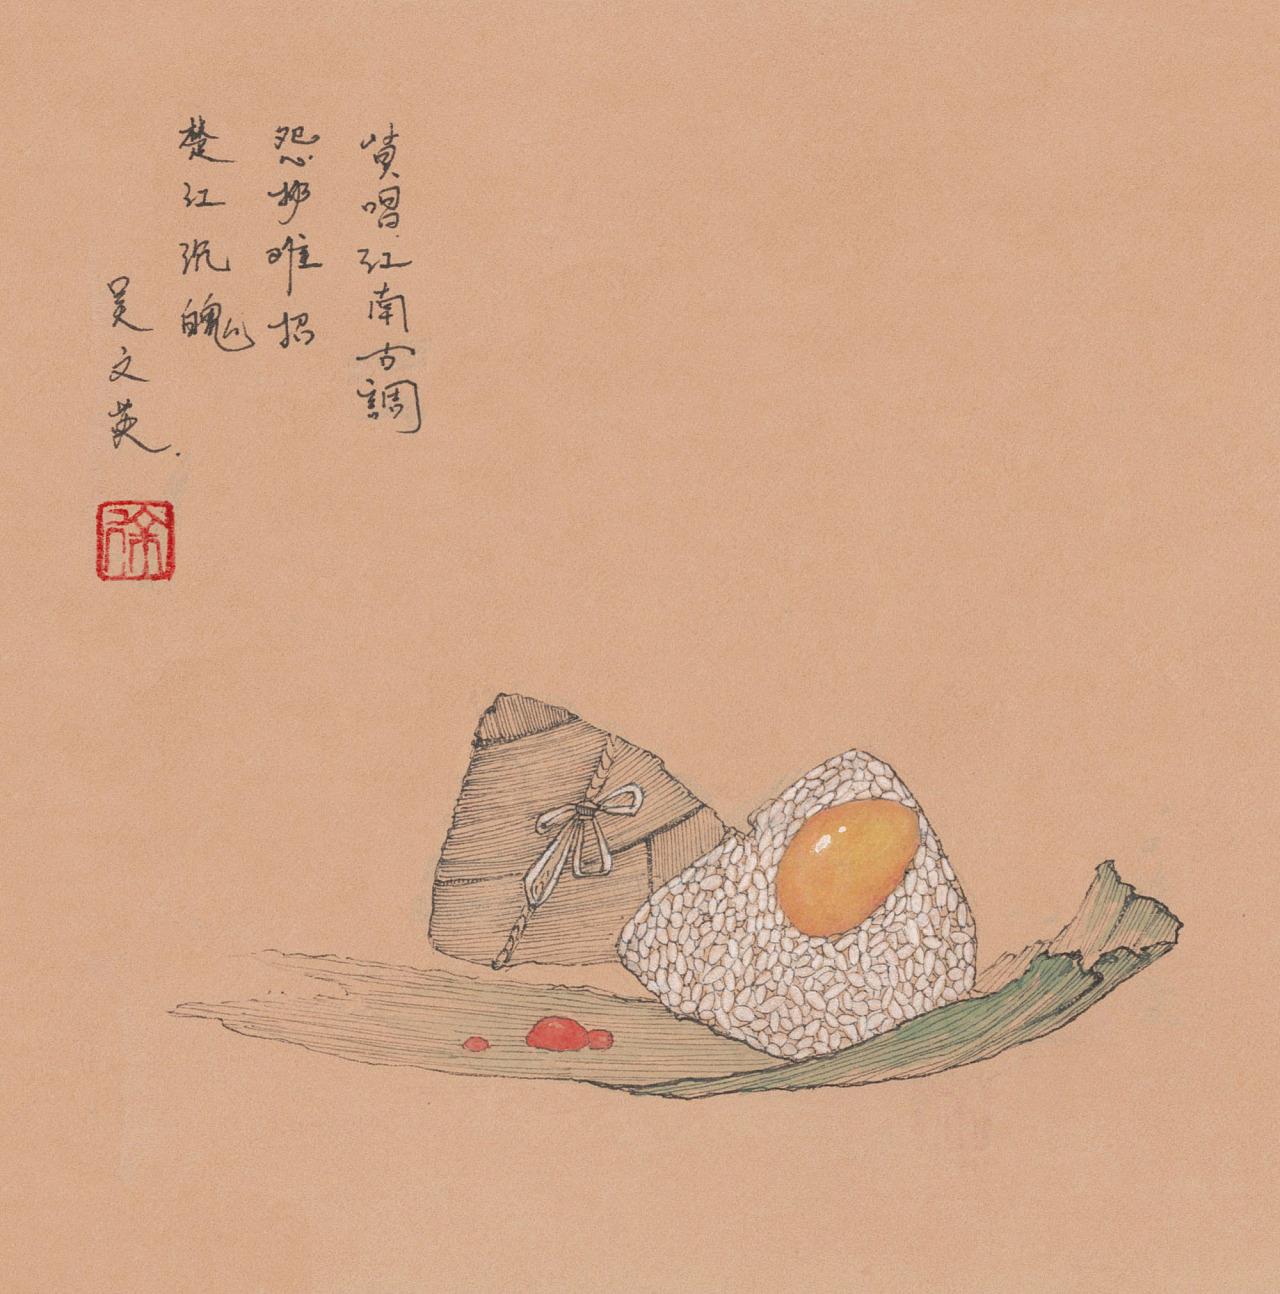 莫唱江南古調
怨抑难招
楚江沉魄
吴文英
徐